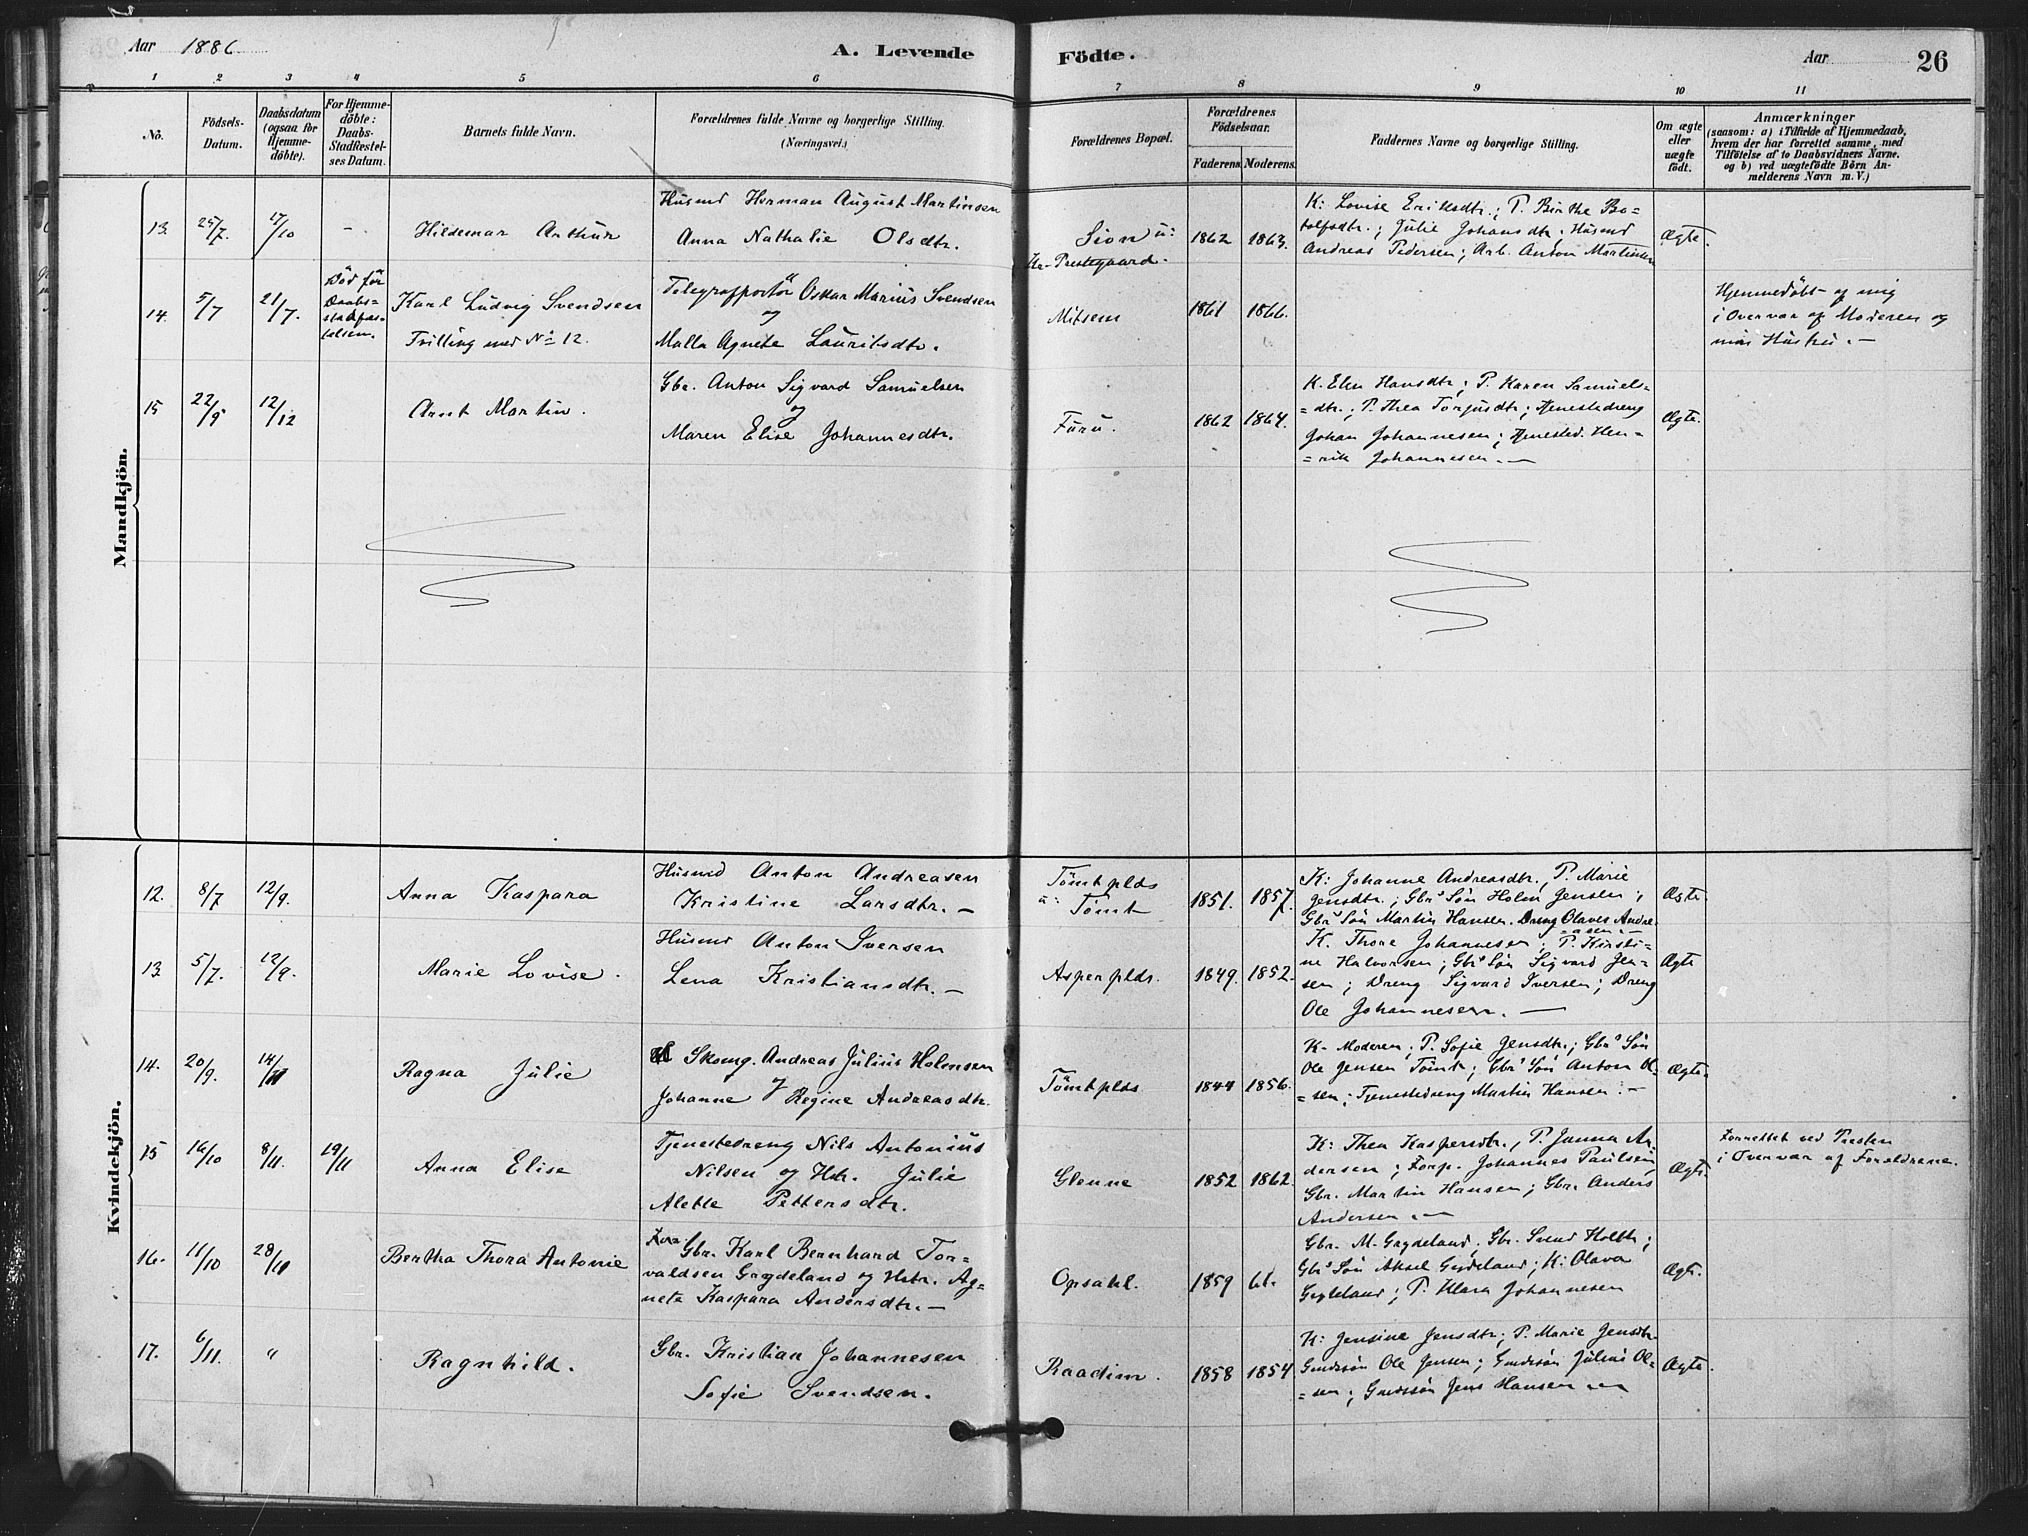 Aar 1886
A. Levende
Födte.
Aar
26
1 2 3 4 5 6 7 8 9 10 11
No.
Födsels-
Datum.
Daabsdatum
(ogsaa for
Hjemme-
döbte).
For Hjemme-
döbte:
Daabs-
Stadfæstel-
ses Datum.
Barnets fulde Navn.
Forældrenes fulde Navne og borgerlige Stilling.
(Næringsvei.)
Forældrenes Bopæl.
Forældrenes
Födselsaar.
Faderens.
Moderens.
Faddernes Navne og borgerlige Stilling.
Om ægte
eller
uægte
födt.
Anmærkninger
(saasom: a) i Tilfælde af Hjemmedaab,
hvem der har forrettet samme, med
Tilföielse af to Daabsvidners Navne,
og b) ved uægtefödte Börn An-
melderens Navn m. V.)
Mandkjön.
13. 25/7. 17/10 -
Hildemar Arthur
Husmd Herman August Martinsen
Anna Nathalie Olsdtr.
Sion u:
Præstegaard.
1862 1863.
K: Lovise Eriksdtr.; P. Birthe Bo-
tolfsdtr.; Julie Johansdtr. Husmd
Andreas Pedersen; Arb. Anton Martinsen
Ægte.
14. 5/7 21/7.
Död för
Daabs=
stadfæs-
telsen.
Karl Ludvig Svendsen
Trilling med No 12.
Telegrafportör Oskar Marius Svendsen
og
Malla Agnete Lauritsdtr.
Mitsem
1861 1866.
Hjemmedöbt af mig
i Overvær af Moderen og
min Hustru. —
15 22/9 12/12
Arnt Martin.
Gbr. Anton Sigvard Samuelsen
og
Maren Elise Johannesdtr.
Furu.
1862 1864.
K. Elen Hansdtr; P. Karen Samuels=
=dtr.; P. Thea Torjusdtr; Tjenestedreng
Johan Johannesen; Tjenested. Hen=
=rik Johannesen. —
Ægte.
Kvindekjön.
12. 8/7 12/9.
Anna Kaspara
Husmd Anton Andreasen
Kristine Larsdtr. —
Tömtplds
u: Tömt
1851. 1857.
K: Johanne Andreasdtr., P. Marie
Jensdtr.; Gbrs Sön Holen Jensen;
Gbrs Sön Martin Hansen. Dreng Olaves Andre-
=asen. —
Ægte
13. 5/7. 12/9.
Marie Lovise.
Husmd Anton Iversen
Lena Kristiansdtr. —
Asperplds.
1849. 1852.
K. Thore Johannesen; P. Kirsti=
ne Halvorsen; Gbrs Sön Sigvard Jen=
sen; Dreng Sigvard Iversen; Dreng
Ole Johannesen. —
Ægte
14. 20/9. 14/11
Ragna Julie
Skomg. Andreas Julius Holensen
Johanne Regine Andreasdtr.
Tömtplds
1844 1856.
K- Moderen; P. Sofie Jensdtr.; Gbrs Sön
Ole Jensen Tömt; Gbrs Sön Anton Ol=
=sen; Tjenestedreng Martin Hansen. —
Ægte.
15 16/10 8/11. 19/11
Anna Elise
Tjenestedreng Nils Antonius
Nilsen og Hstr. Julie
Alette Pettersdtr.
Glenne
1852 1862.
K: Thea Kaspersdtr., P. Janna An-
dersen; Forp. Johannes Paulsen,
Gbr. Martin Hansen; Gbr. Anders
Andersen. —
Ægte.
Forrettet ved Presten
i Overvær af Forældrene.
16. 11/10 28/11
Bertha Thora Antonie
Gbr. Karl Bernhard Tor=
valdsen Grydeland og Hstr. Ag=
nete Kaspara Andersdtr. —
Opsahl.
1859 61.
Gbr. M. Grydeland, Gbr. Svend Holth;
Gbrs Sön Aksel Grydeland; K: Olava
Grydeland; P. Klara Johannesen
Ægte.
17. 6/11. "
Ragnhild.
Gbr. Kristian Johannesen
Sofie Svendsen.
Raadim.
1858 1854
K: Jensine Jensdtr; P. Marie Jensdtr.
Gmdssön Ole Jensen; Gmdssön Julius Ol=
=sen; Gmdssön Jens Hansen —
Ægte.